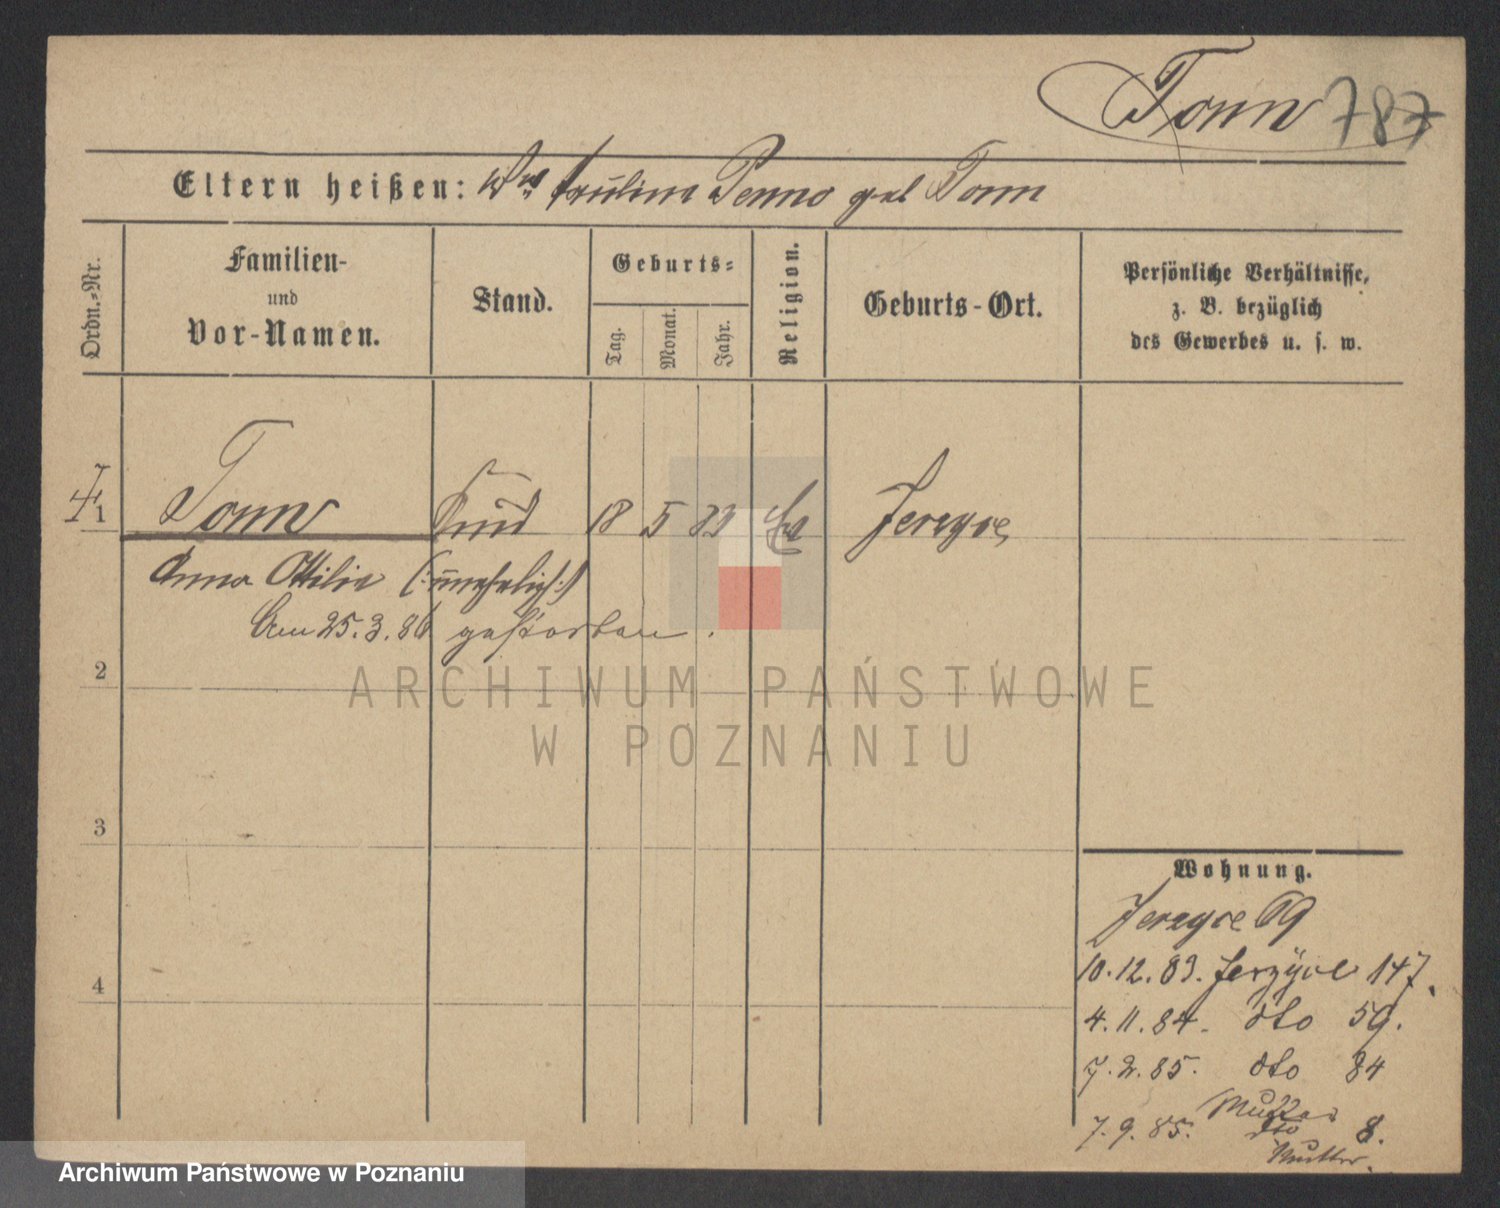 Tonn 787
Eltern heißen: Wwe Paulina Penno geb Tonn
Ordn.-Nr.
Familien-
und
Vor-Namen.
Stand.
Geburts-
Tag.
Monat.
Jahr.
Religion.
Geburts-Ort.
Persönliche Verhältnisse,
z. B. bezüglich
des Gewerbes u. s. w.
1 Tonn Kind 18 5 83 Ev Jerzyce
Anna Ottilie (:unehelich:)
Am 25.3.86 gestorben.
2
3
4
Wohnung.
Jerzyce 69
10.12.83. Jerzyce 147.
4.11.84. dto 59.
7.2.85. dto 84
Mutter
7.9.85. dto 8.
Mutter.
ARCHIWUM PAŃSTWOWE
W POZNANIU
Archiwum Państwowe w Poznaniu